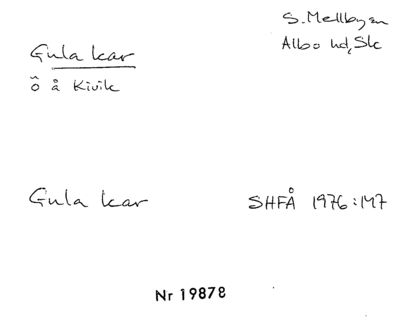 Gula kar
ö å Kivik
S. Mellbyan
Albo hd, Sk
Gula kar
SHFÅ 1976:147
Nr 19878